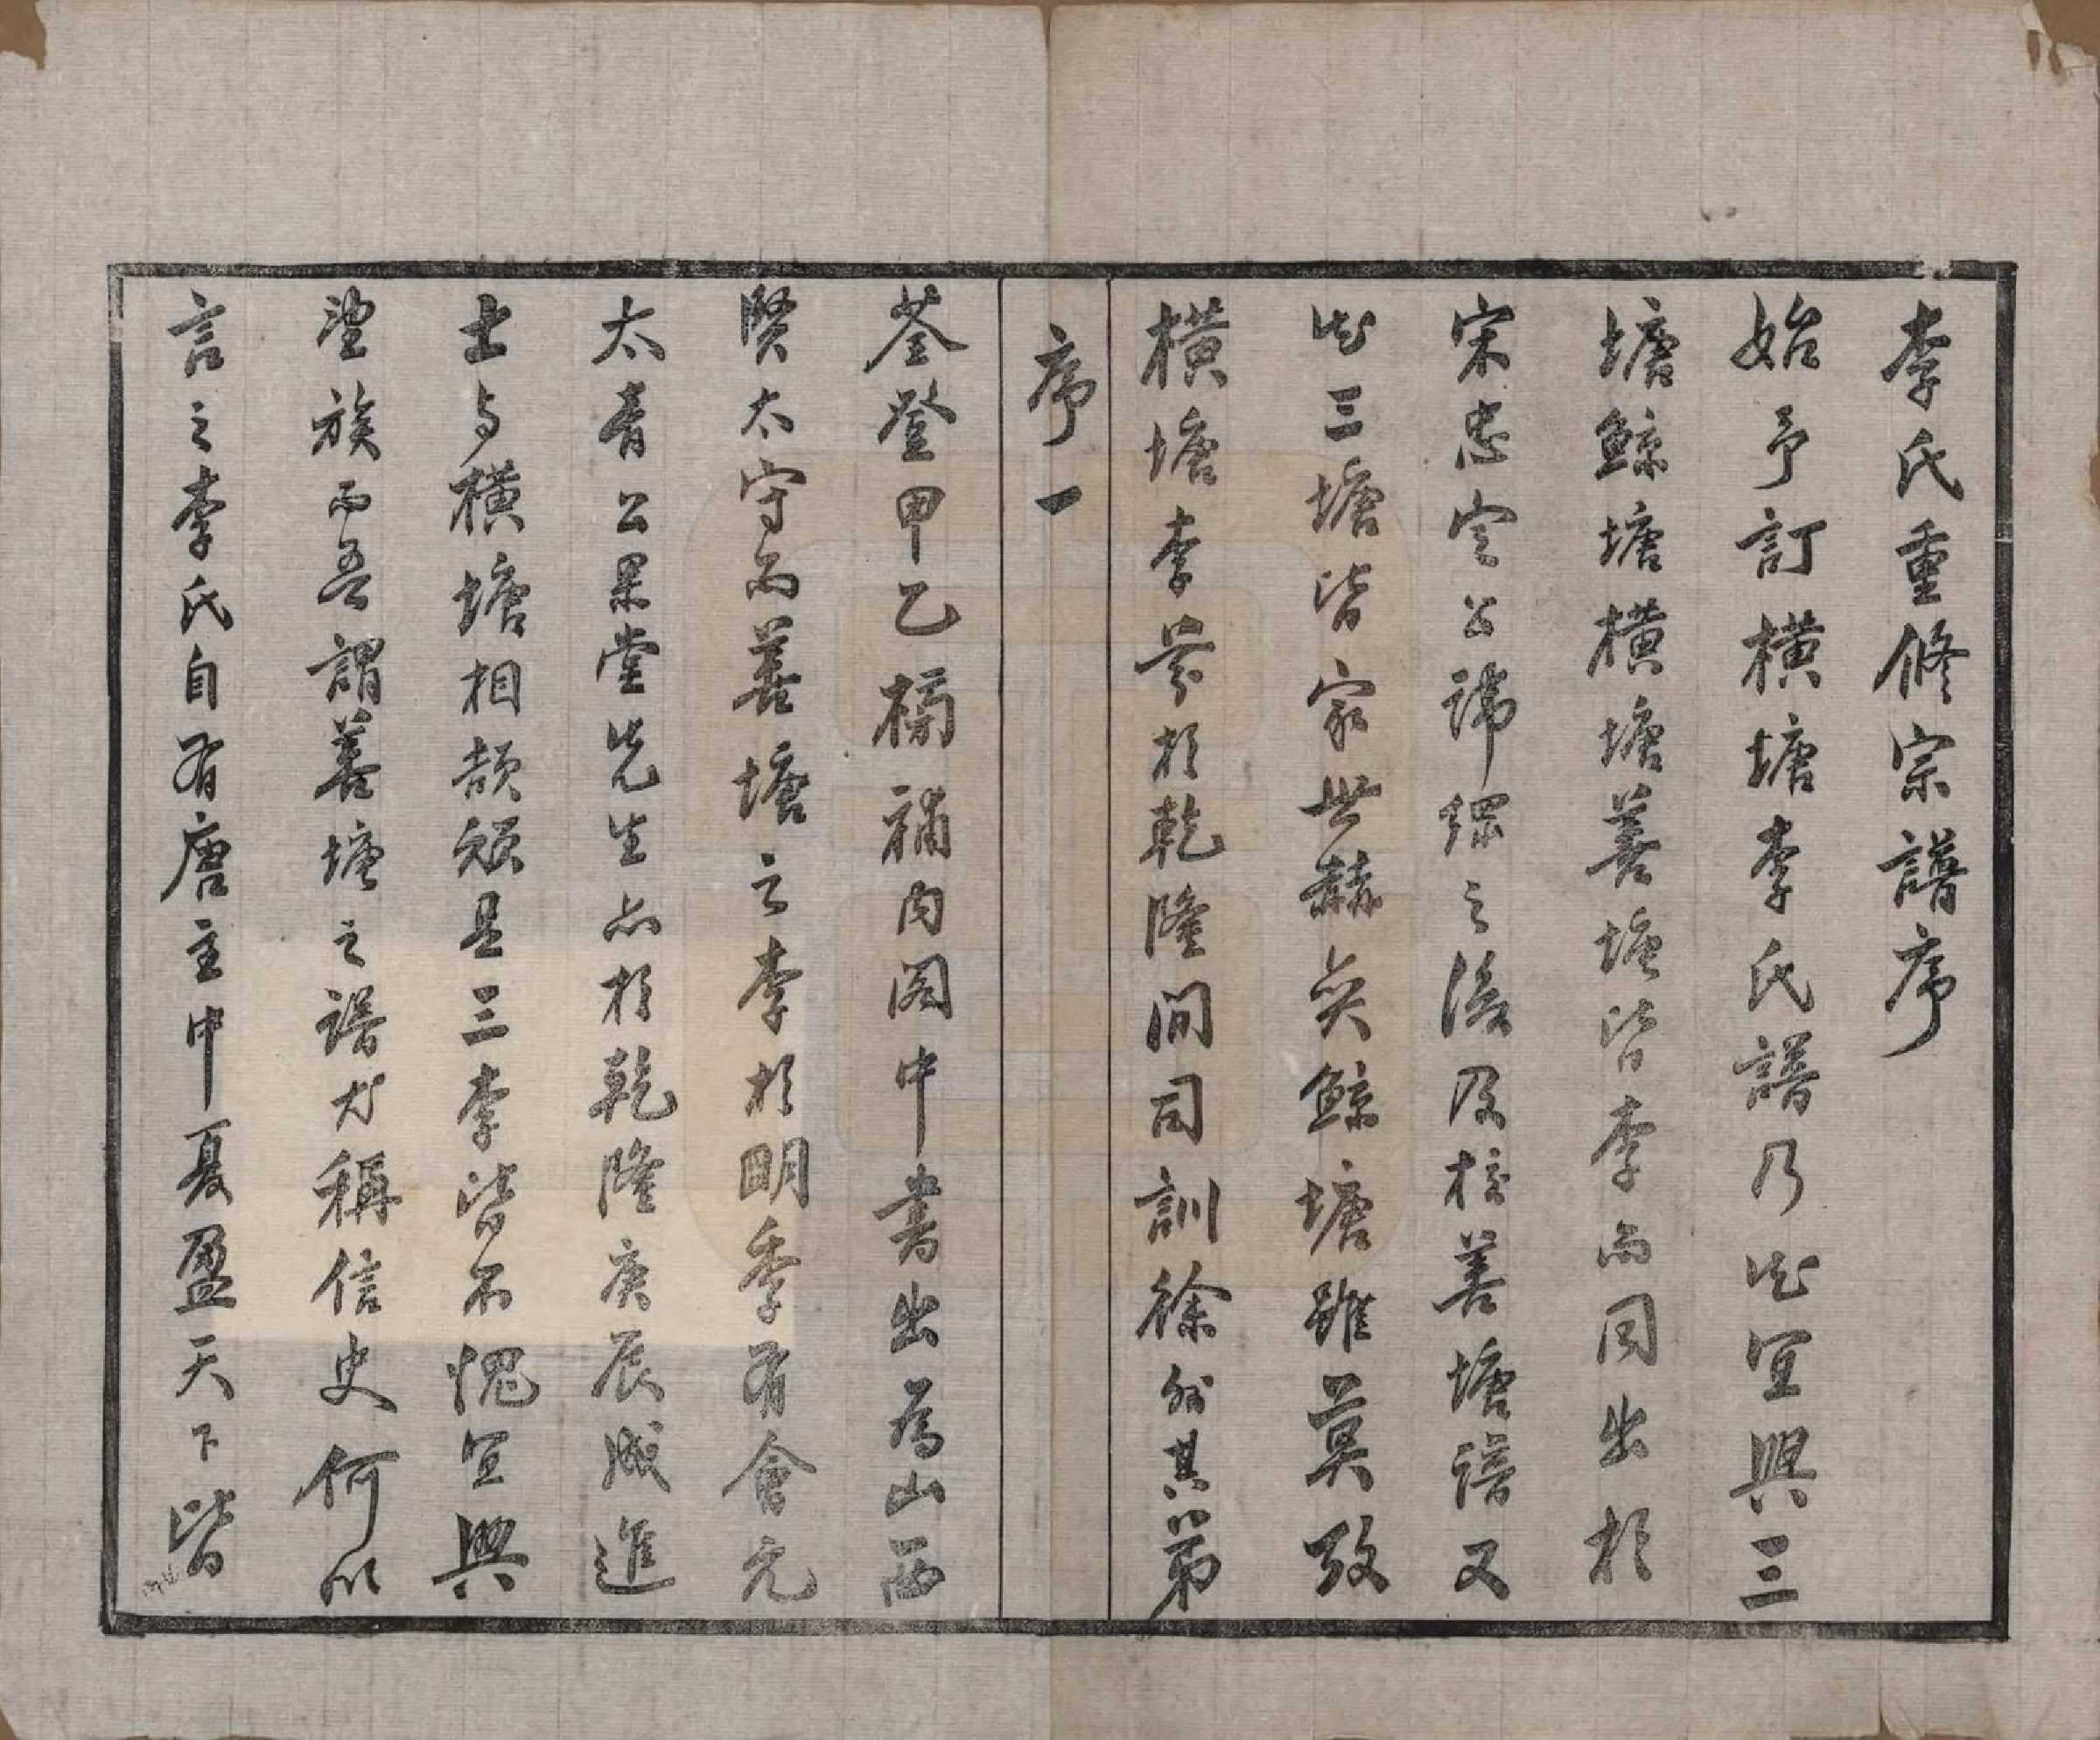 李氏重修宗譜序
始予訂橫塘李氏譜乃知宜興三
塘鯨塘橫塘善塘皆李而同出於
宋忠定公諱綱之後及校善塘譜又
知三塘皆家世赫奕鯨塘雖莫攷
橫塘李芬於乾隆間司訓徐州其弟
序一
荃登甲乙榜補內閣中書出為山西
賢太守而善塘之李於明季有會元
太青公果堂先生亦於乾隆庚辰成進
士与橫塘相頡頏是三李皆不愧宜興
望族而吾謂善塘之譜尤稱信史何以
言之李氏自有唐主中夏盈天下皆